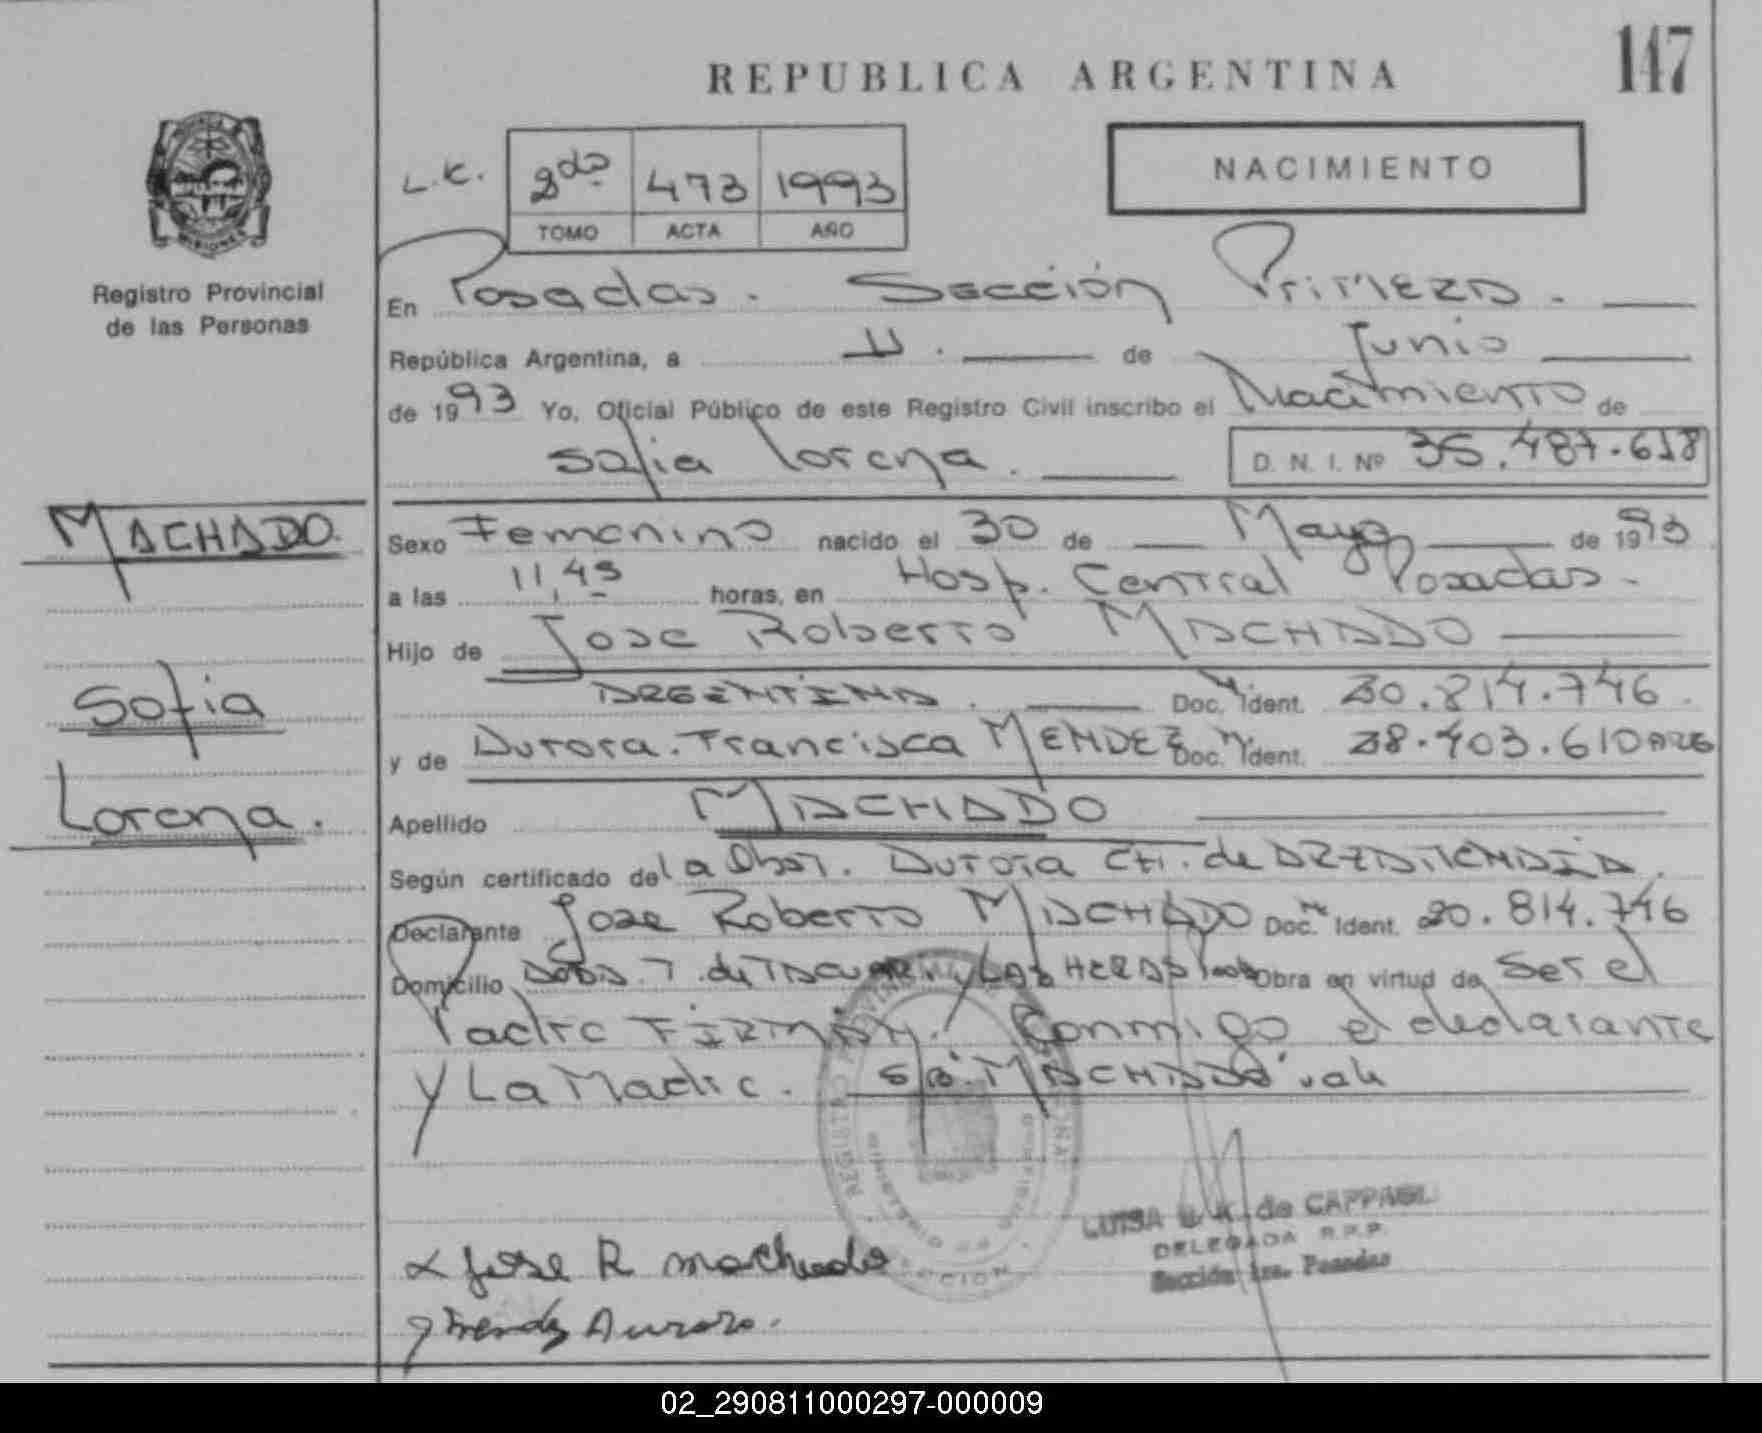 147
REPUBLICA ARGENTINA
NACIMIENTO
L.K.
2do 473 1993
TOMO ACTA AÑO
Registro Provincial
de las Personas
En Posadas. Sección Primera.
República Argentina, a 11. de Junio
de 1993 Yo, Oficial Público de este Registro Civil inscribo el Nacimiento de
Sofia Lorena. D. N. I. Nº 35.487.618
MACHADO
Sexo Femenino nacido el 30 de Mayo de 1993
a las 11,45 horas, en Hosp. Central Posadas.
Hijo de Jose Roberto MACHADO
ARGENTINA. Doc. Ident. 20.814.746
Sofia
y de Aurora Francisca MENDEZ Doc. Ident. 28.403.610 ARG
Lorena.
Apellido MACHADO
Según certificado de la Obst. Aurora de
Declarante Jose Roberto MACHADO Doc. Ident. 20.814.746
Domicilio T. de TACUARI y LAS HERAS Obra en virtud de Ser el
Padre FIRMAN. Conmigo el declarante
y La Madre. MACHADO vale
LUISA de CAPPAGLI
DELEGADA R.P.P.
Sección 1ra. Posadas
Jose R machado
Mendez Aurora.
02_290811000297-000009